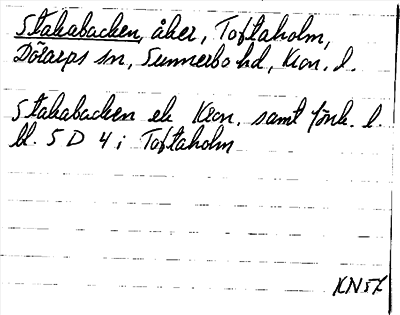 Stakabacken, åker, Toftaholm,
Dörarps sn, Sunnerbo hd, Kron. l.
Stakabacken ek Kron. samt jönk. l.
bl. 5 D 4 i Toftaholm
KN57